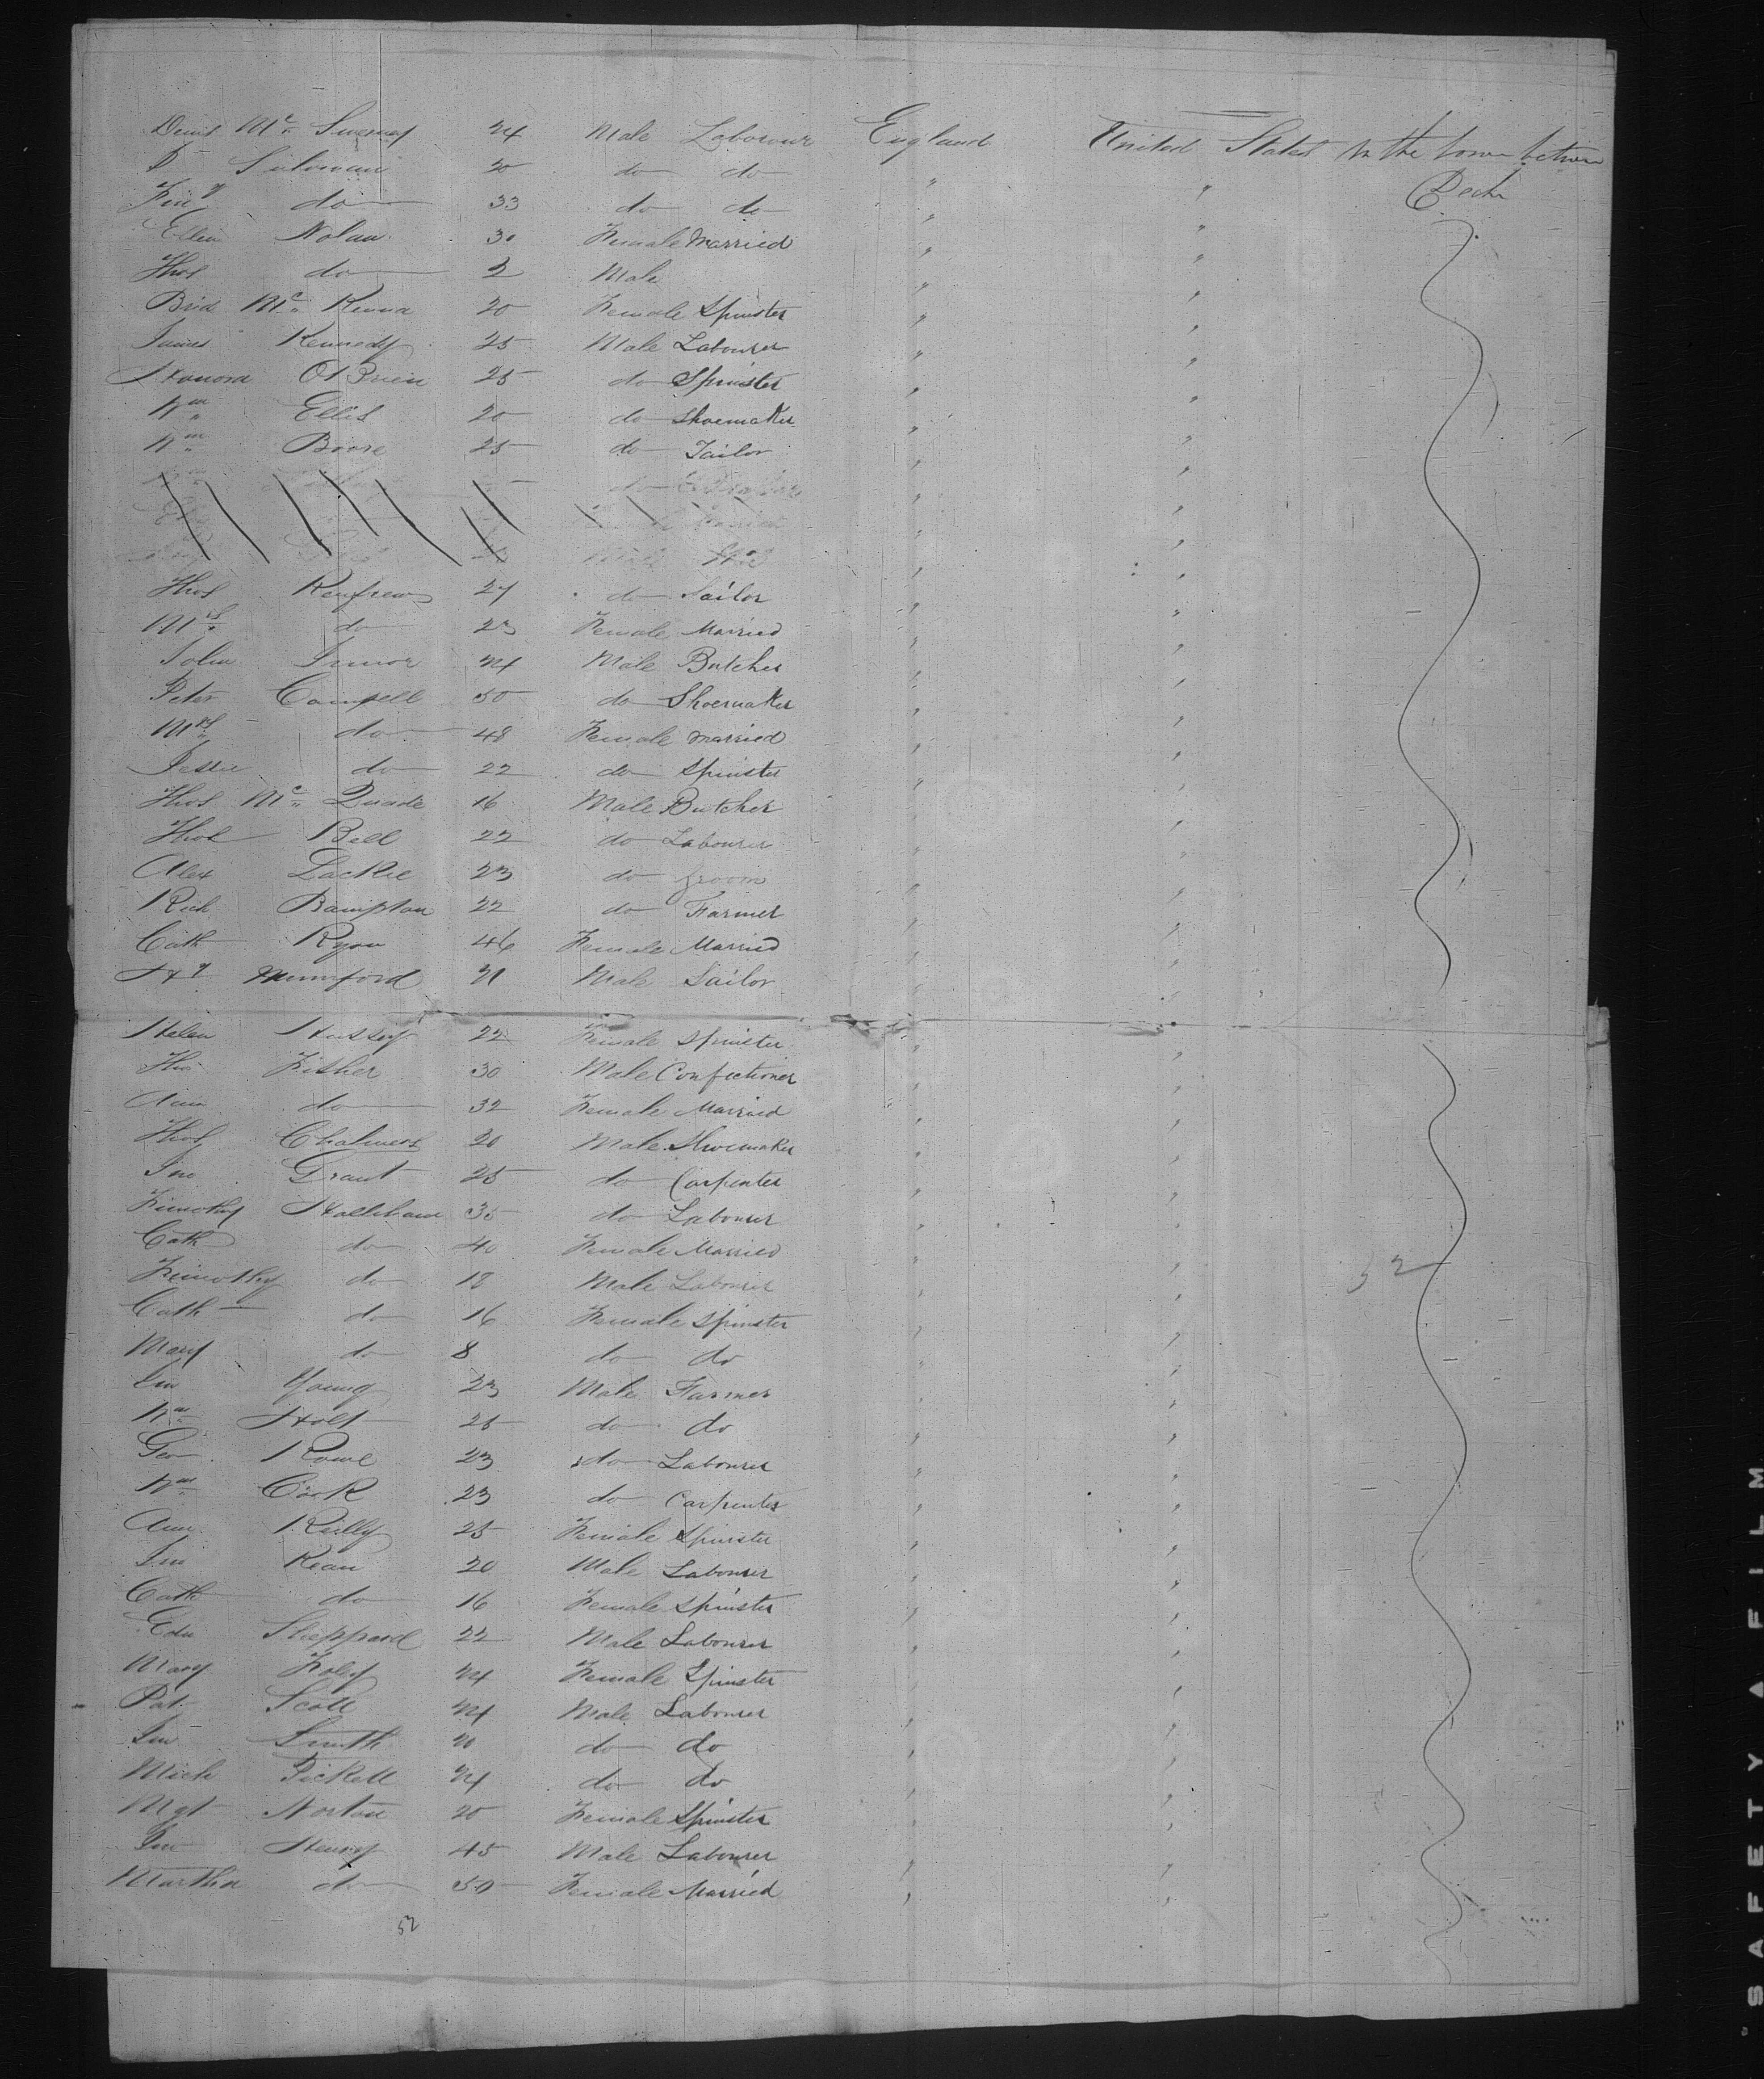 Denis Mc Sweeney 24 Male Labourer England United States In the lower between
D Sulivan 20 do do " " Deck
do 33 do do " "
Ellen Nolan 30 Female Married " "
Thos do 2 Male " "
Brid Mc Kenna 20 Female Spinster " "
James Kennedy 25 Male Labourer " "
Honora O'Brien 25 do Spinster " "
Wm Ellis 20 do Shoemaker " "
Wm Boore 25 do Tailor " "
do
Married
Male
Thos Renfrew 27 do Sailor " "
Mrs do 23 Female Married " "
John 24 Male Butcher " "
Peter Campell 50 do Shoemaker " "
Mrs do 48 Female Married " "
Jessie do 22 do Spinster " "
Thos Mc Quade 16 Male Butcher " "
Thos Bell 22 do Labourer " "
Alex Lackie 23 do Groom " "
Rich Bampton 22 do Farmer " "
Cath Ryan 46 Female Married " "
Hy Mumford 21 Male Sailor " "
Helen Hussey 22 Female Spinster " "
Fisher 30 Male Confectioner " "
Ann do 32 Female Married " "
Thos Chalmers 20 Male Shoemaker " "
Jno Grant 25 do Carpenter " "
Timothy Hallihane 35 do Labourer " "
Cath do 40 Female Married " "
Timothy do 18 Male Labourer " " 52
Cath do 16 Female Spinster " "
Mary do 8 do do " "
Jno Young 23 Male Farmer " "
Wm Holt 25 do do " "
Geo Rowe 23 do Labourer " "
Wm Cork 23 do Carpenter " "
Ann Reilly 25 Female Spinster " "
Jno Kean 20 Male Labourer " "
Cath do 16 Female Spinster " "
Edw Sheppard 22 Male Labourer " "
Mary Foley 24 Female Spinster " "
Pat Scott 24 Male Labourer " "
Jno Smith 20 do do " "
Mich Pickett 24 do do " "
Mgt Norton 20 Female Spinster " "
Jno Henry 45 Male Labourer " "
Martha do 50 Female Married " "
52
SAFETY FILM